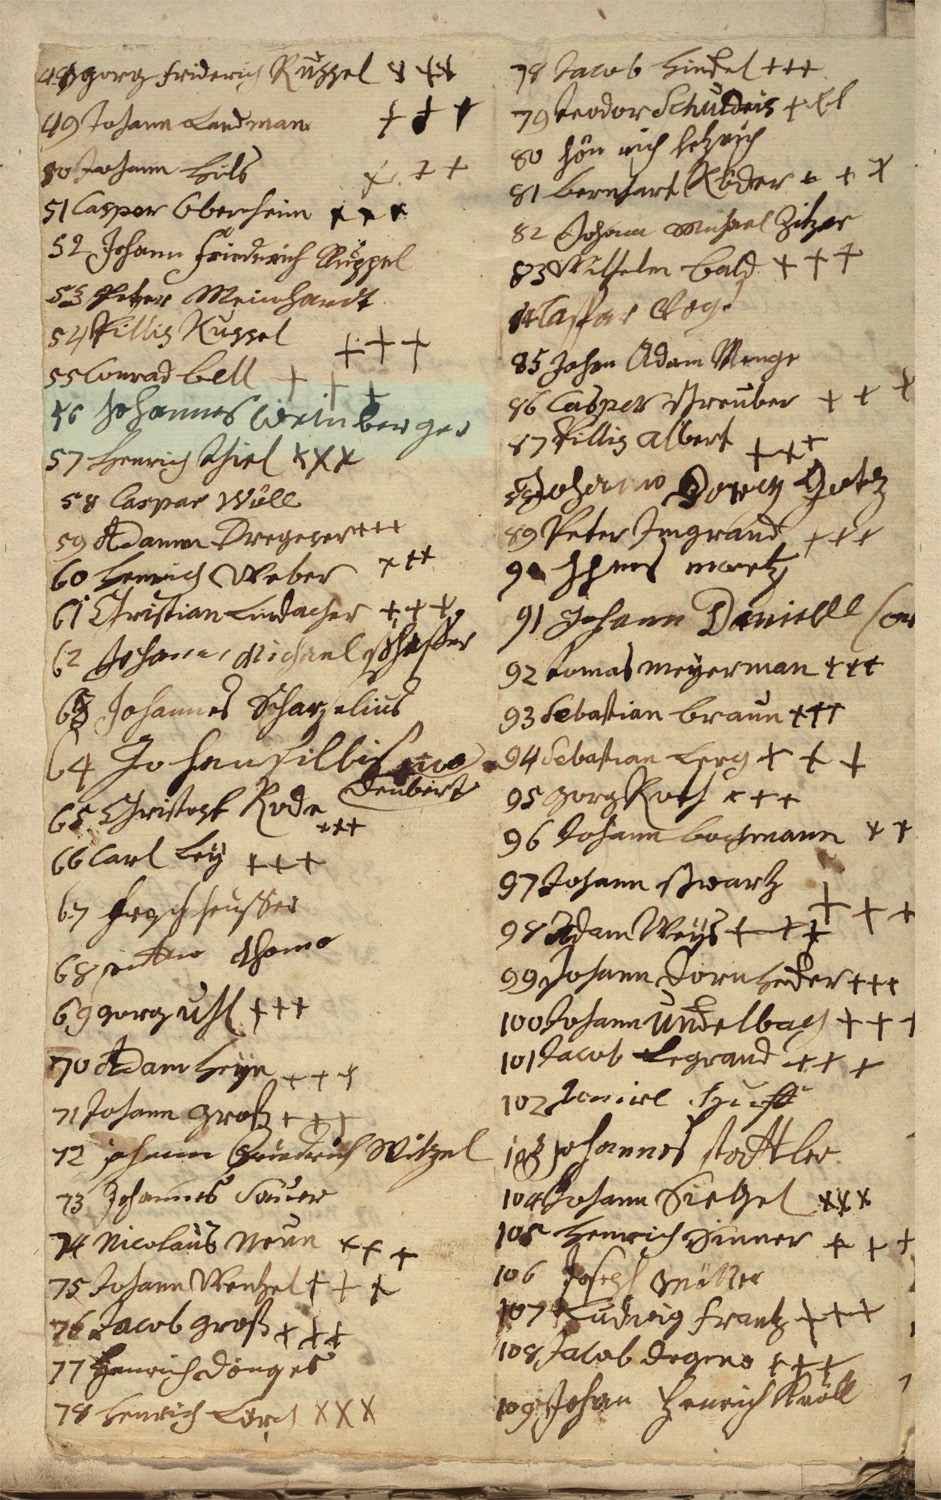 48 gorg friderich Rüppel x x x
49 Johann Landman + + +
50 Johann Hils x + +
51 Casper Oberheim x x x
52 Johann Friederich Rüppel
53 Peter Meinhardt
54 Pillip Ruppel + + +
55 Conrad bell + + +
56 Johannes Weinberger
57 Henrich Thiel x x x
58 Caspar Wüll
59 Adamm +++
60 Henrich Weber + + +
61 Christian Lindacher + + +
62 Johann Michael schaffer
63 Johannes
64 Johan Fillibs
deubert
65 Christoph Rode +++
66 Carl Ley + + +
67
68 thomo
69 gorg uhl +++
70 Adam Heyn + + +
71 Johann groß + + +
72 johann Friedrich Witzel
73 Johannes Sauer
74 Nicolaüs Neün + + +
75 Johann Wenhel + + +
76 Jacob groß + + +
77 Henrich dönges
78 Henrich Lörch x x x
78 Jacob Hindel +++
79 Teodor Schuldeis + + +
80
81 bernhart Röder + + x
82 Johann Michael Zitzer
83 Wilhelm bald + + +
84 Caspar
85 Johan Adam Menge
86 Casper streuber + + +
87 Pillip albert + + +
88 Johann Götz
89 Peter Imgrand + + +
90
91 Johann Danielll
92 tomas meyerman +++
93 Sebastian braun +++
94 Sebastian Lerg + + +
95 gorg Roth + + +
96 Johann bachmann + +
97 Johann swartz + + +
98 Adam Weÿs + + +
99 Johann Dornheder +++
100 Johann Undelbach + + +
101 Jacob Legrand + + +
102 Daniel Huft
103 Johannes stattler
104 Johann Siegel xxx
105 Henrich Sinner + + +
106 Joseph Müller
107 Ludwig frantz + + +
108 Jacob degene + + +
109 Johan Henrich Knöll